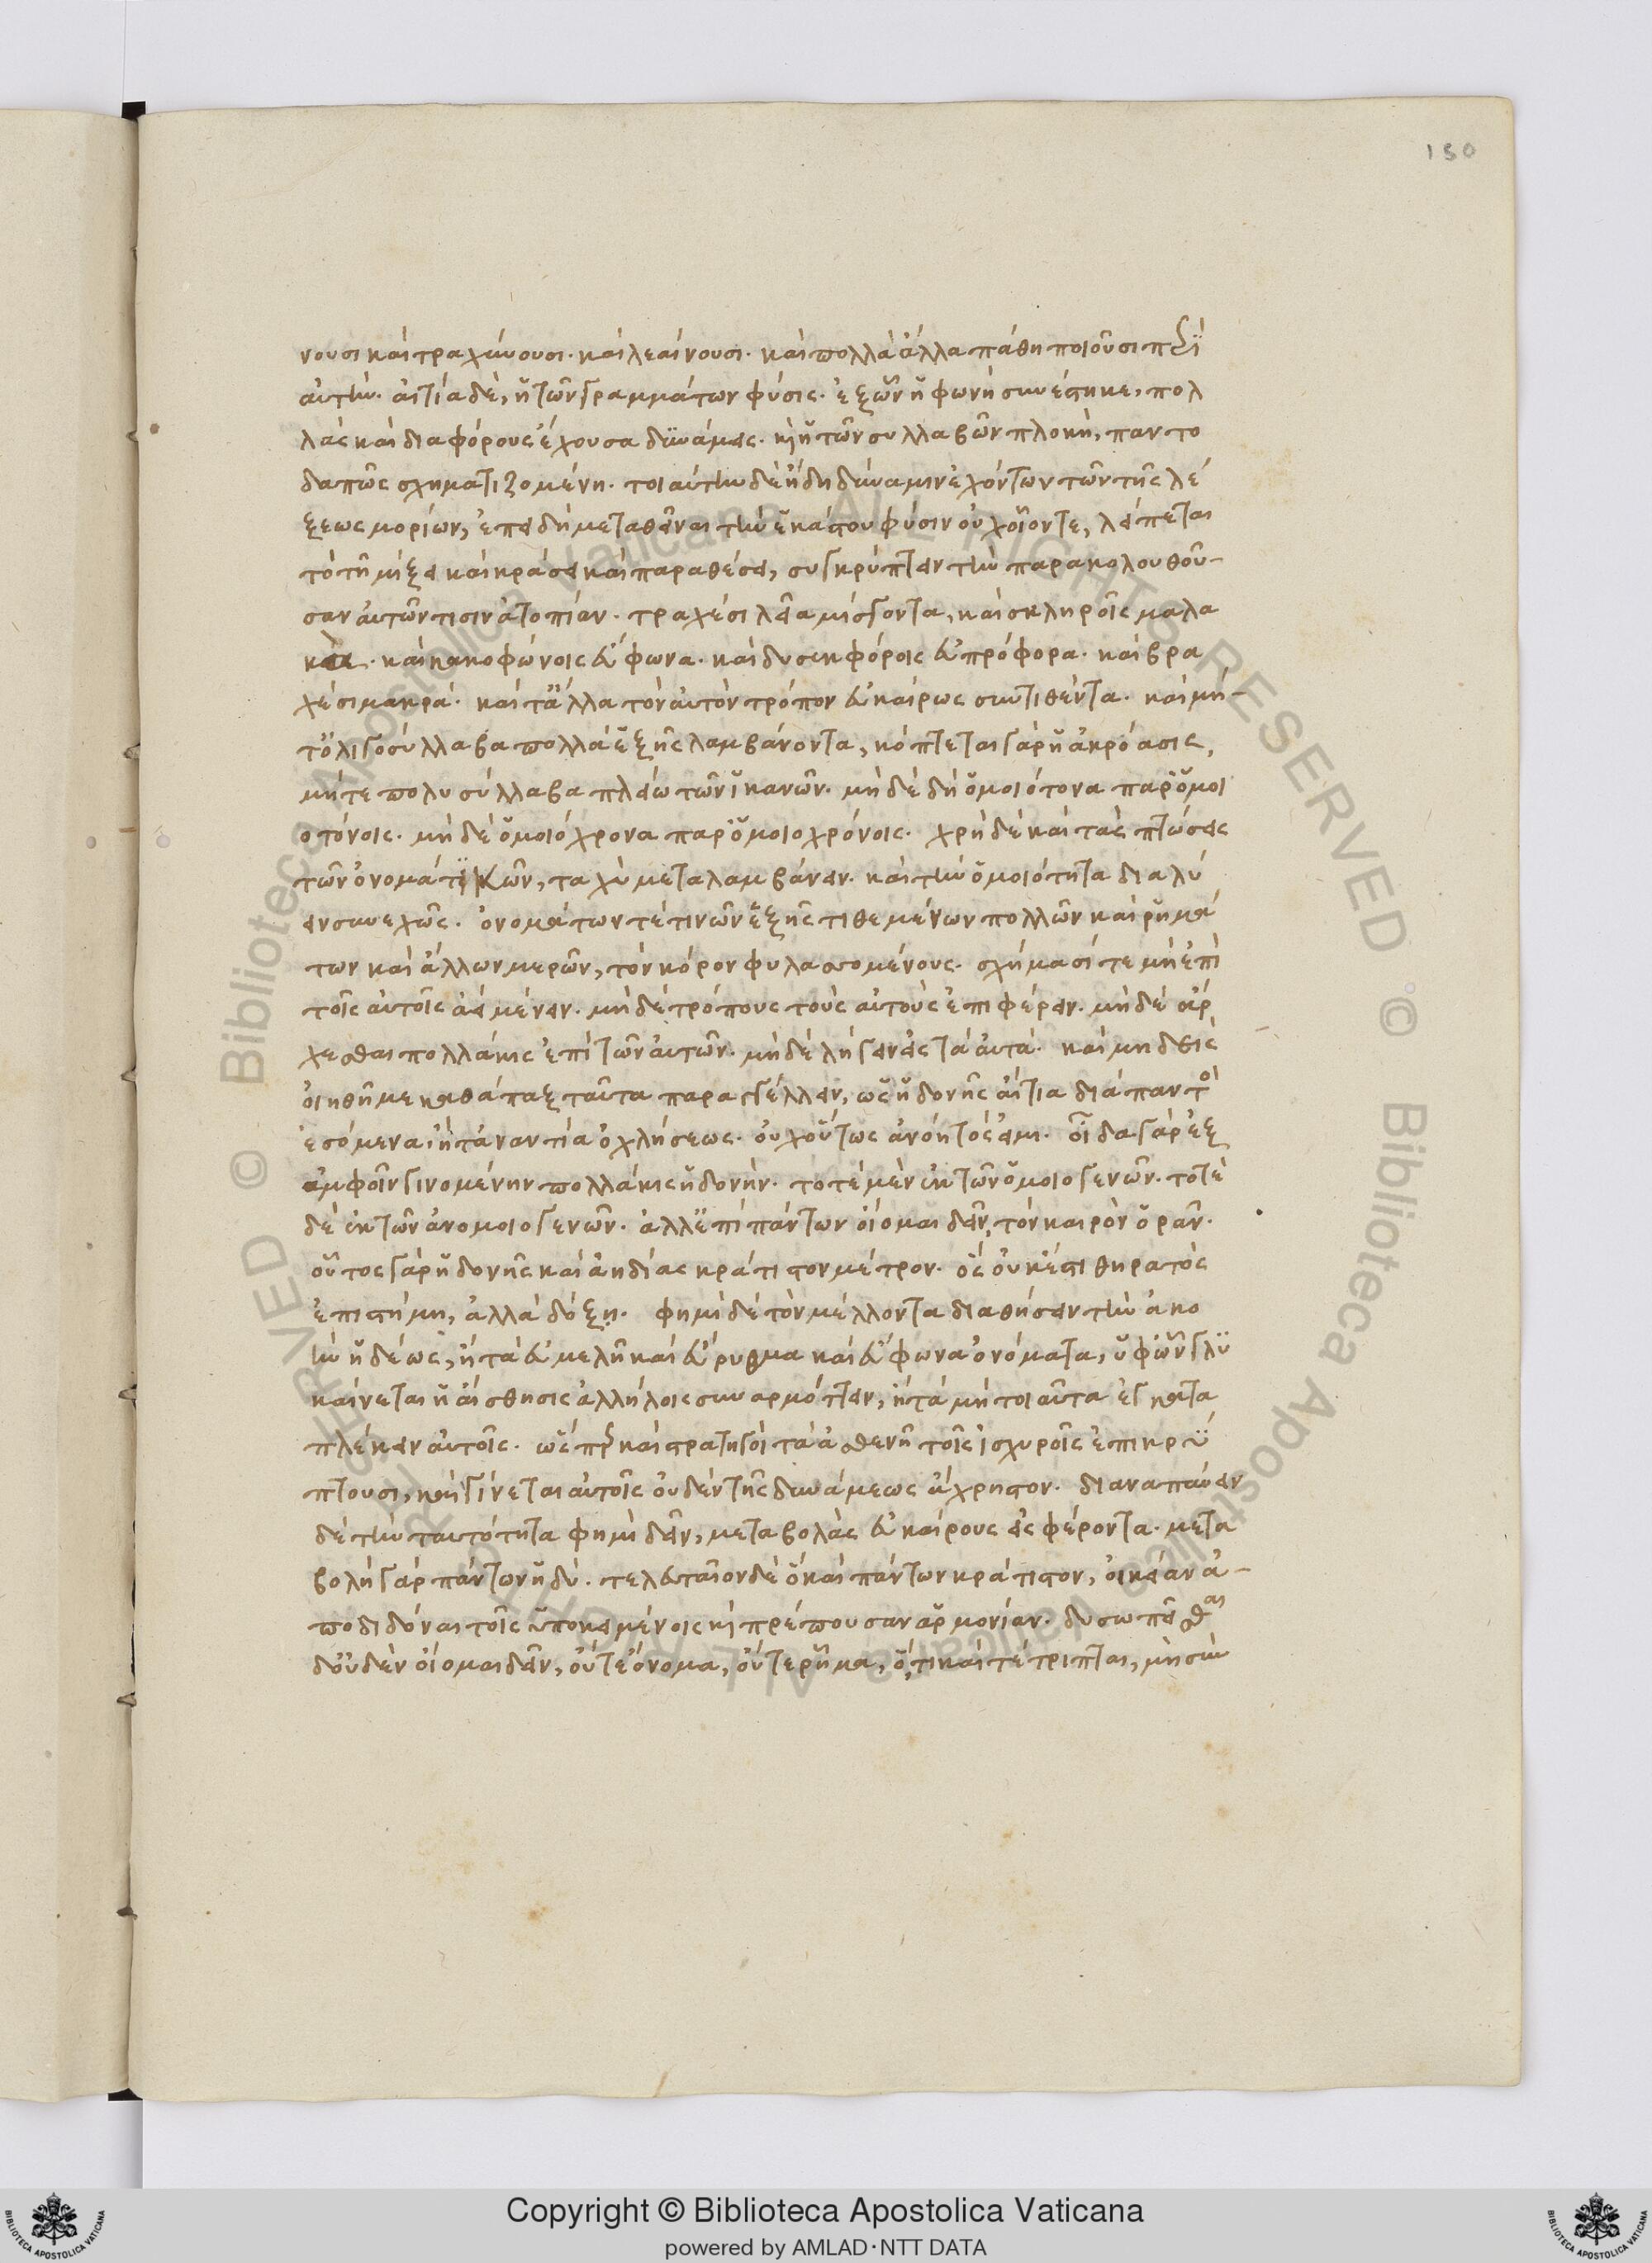 150
νουσι καὶ τραχύνουσι. καὶ λεαίνουσι. καὶ πολλὰ ἄλλα πάθη ποιοῦσι περὶ
αὐτήν. αἰτία δὲ, ἥ τῶν γραμμάτων φύσις. ἐξ ὧν ἡ φωνὴ συνέστηκε, πολ
λὰς καὶ διαφόρους ἔχουσα δυνάμεις. καὶ ἡ τῶν συλλαβῶν πλοκὴ, παντο
δαπῶς σχηματιζομένη. τοιαύτην δὲ ἤδη δύναμιν ἐχόντων τῶν τῆς λέ
ξεως μορίων, ἐπειδὴ μεταθεῖναι τὴν ἑκάστου φύσιν οὐχ οἷόντε, λείπεται
τὸ τῇ μίξει καὶ κράσει καὶ παραθέσει, συγκρύπτειν τὴν παρακολουθοῦ-
σαν αὐτῶν τισιν ἀτοπίαν. τραχέσι λεῖα μίσγοντα, καὶ σκληροῖς μαλα
κὰ. καὶ κακοφώνοις εὔφωνα. καὶ δυσεκφόροις εὐπρόφορα. καὶ βρα
χέσι μακρά. καὶ τἄλλα τὸν αὐτὸν τρόπον εὐκαίρως συντιθέντα. καὶ μή-
τ' ὀλιγοσύλλαβα πολλὰ ἑξῆς λαμβάνοντα, κόπτεται γὰρ ἡ ἀκρόασις,
μήτε πολυσύλλαβα πλείω τῶν ἱκανῶν. μὴ δὲ δὴ ὁμοιότονα παρ' ὁμοι
οτόνοις. μὴ δὲ ὁμοιόχρονα παρ' ὁμοιοχρόνοις. χρὴ δὲ καὶ τὰς πτώσεις
τῶν ὀνοματικῶν, ταχὺ μεταλαμβάνειν. καὶ τὴν ὁμοιότητα διαλύ
ειν συνεχῶς. ὀνομάτων τέ τινῶν ἑξῆς τιθεμένων πολλῶν καὶ ῥημά
των καὶ ἄλλων μερῶν, τὸν κόρον φυλασσομένους. σχήμασί τε μὴ ἐπὶ
τοῖς αὐτοῖς ἀεὶ μένειν. μὴ δὲ τρόπους τοὺς αὐτοὺς ἐπιφέρειν. μὴ δὲ ἄρ
χεσθαι πολλάκις ἐπὶ τῶν αὐτῶν. μὴ δὲ λήγειν εἰς τὰ αὐτά. καὶ μηδεὶς
οἰηθῇ με καθάπαξ ταῦτα παραγγέλλειν, ὡς ἡδονῆς αἴτια διαπαντὸς
ἐσόμενα ἢ τἀναντία ὀχλήσεως. οὐχ οὕτως ἀνόητός εἰμι. οἶδα γὰρ ἐξ
ἀμφοῖν γινομένην πολλάκις ἡδονήν. τοτὲ μὲν ἐκ τῶν ὁμοιογενῶν. τοτὲ
δὲ ἐκ τῶν ἀνομοιογενῶν. ἀλλ' ἐπὶ πάντων οἴομαι δεῖν, τὸν καιρὸν ὁρᾶν.
οὗτος γὰρ ἡδονῆς καὶ ἀηδίας κράτιστον μέτρον. ὅς οὐκ ἔστι θηρατὸς
ἐπιστήμῃ, ἀλλὰ δόξῃ. φημὶ δὲ τὸν μέλλοντα διαθήσειν τὴν ἀκο
ὴν ἡδέως, ἢ τὰ εὐμελῆ καὶ εὔρυθμα καὶ εὔφωνα ὀνόματα, ὑφ' ὧν γλυ
καίνεται ἡ αἴσθησις ἀλλήλοις συναρμόττειν, ἢ τὰ μὴ τοιαῦτα ἐγκατα
πλέκειν αὐτοῖς. ὥσπερ καὶ στρατηγοὶ τὰ ἀσθενῆ τοῖς ἰσχυροῖς ἐπικρύ
πτουσι, καὶ γίνεται αὐτοῖς οὐδὲν τῆς δυνάμεως ἄχρηστον. διαναπαύειν
δὲ τὴν ταυτότητα φημὶ δεῖν, μεταβολὰς εὐκαίρους εἰσφέροντα. μετα
βολὴ γὰρ πάντων ἡδύ. τελευταῖον δὲ ὃ καὶ πάντων κράτιστον, οἰκείαν ἀ-
ποδιδόναι τοῖς ὑποκειμένοις καὶ πρέπουσαν ἁρμονίαν. δυσωπεῖσθαι
δ' οὐδὲν οἴομαι δεῖν, οὔτε ὄνομα, οὔτε ῥῆμα, ὅ,τι καὶ τέτριπται, μὴ σὺν
Copyright © Biblioteca Apostolica Vaticana
powered by AMLAD·NTT DATA